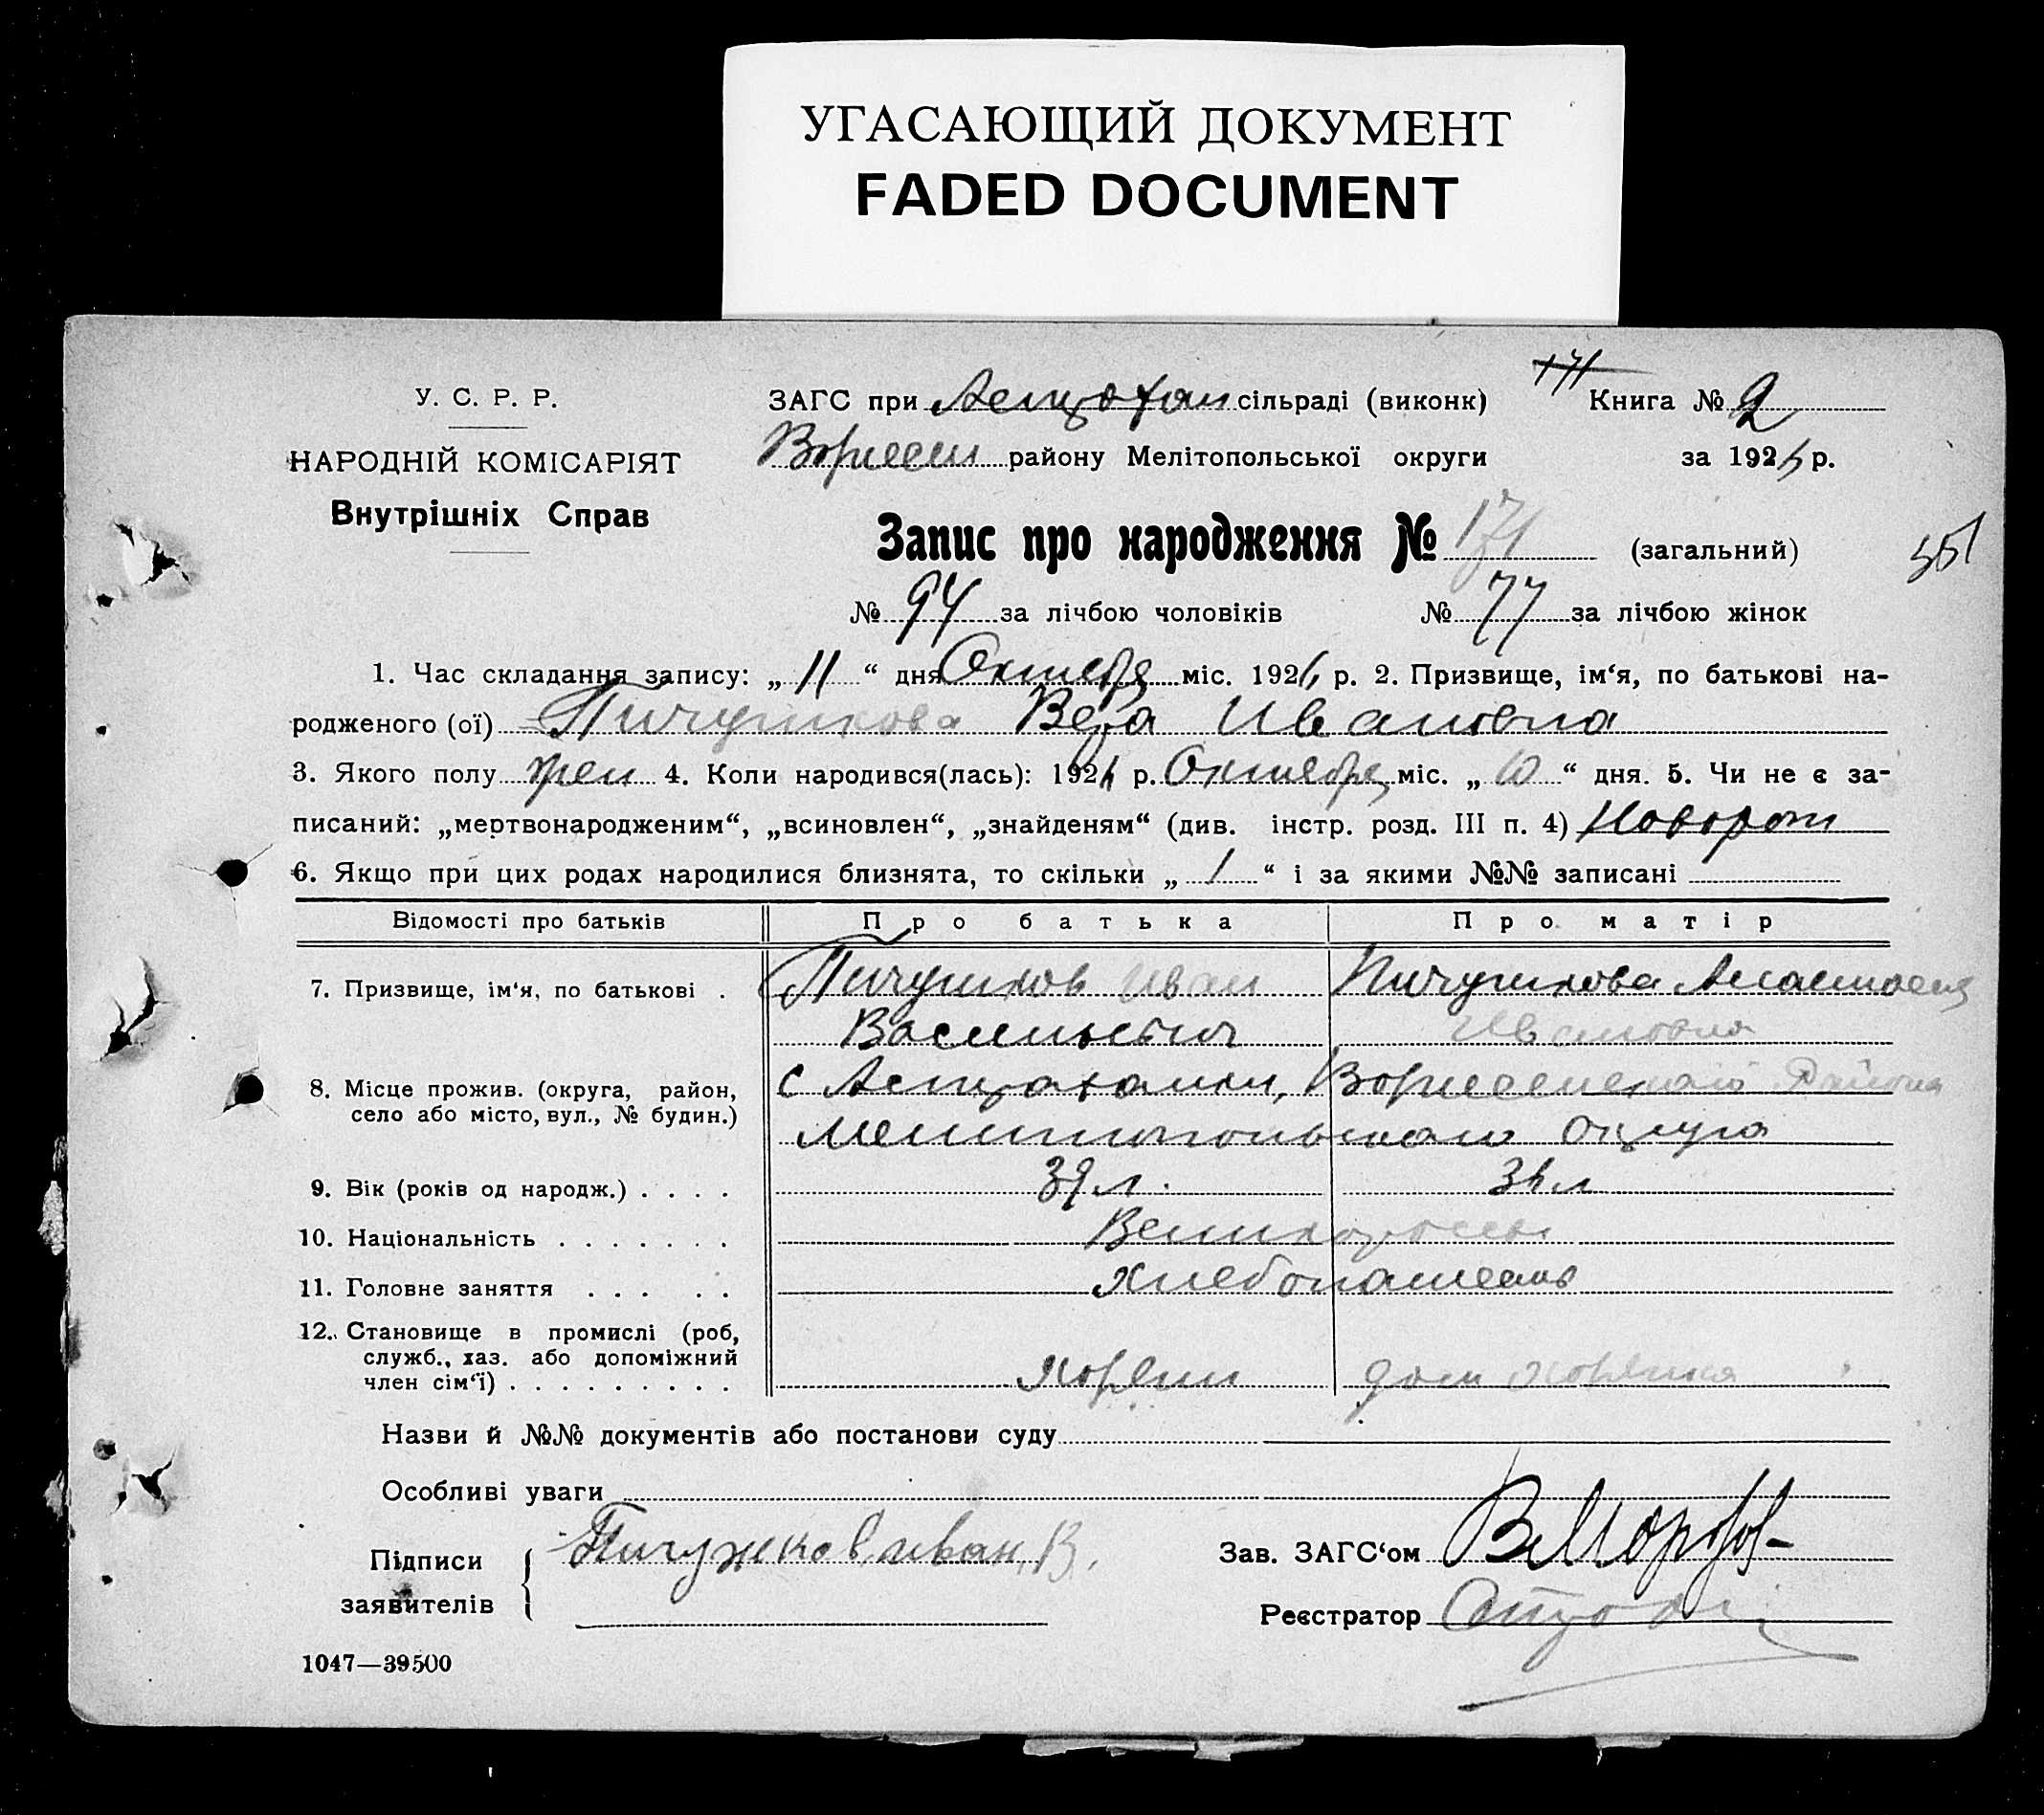 УГАСАЮЩИЙ ДОКУМЕНТ
FADED DOCUMENT
171
У. С. Р. Р.
ЗАГС при Астрахан сільраді (виконк) Книга № 2
НАРОДНІЙ КОМІСАРІЯТ
району Мелітопольської округи за 192 р.
Внутрішніх Справ
Запис про народження № 171 (загальний)
351
№ 94 за лічбою чоловіків № 77 за лічбою жінок
1. Час складання запису: „ 11 “ дня Октября міс. 192 р. 2. Призвище, ім‘я, по батькові на-
родженого (ої) Пичужкова Вера Ивановна
3. Якого полу жен 4. Коли народився(лась): 192 р. Октября міс. „ 10 “ дня. 5. Чи не є за-
писаний: „мертвонародженим“, „всиновлен“, „знайденям“ (див. інстр. розд. III п. 4) Новорож
6. Якщо при цих родах народилися близнята, то скільки „ 1 “ і за якими №№ записані
Відомості про батьків Про батька Про матір
7. Призвище, ім‘я, по батькові . Пичужков Иван Пичужкова Анастасия
Васильевич Ивановна
8. Місце прожив. (округа, район, с Астраханки, Района
село або місто, вул., № будин.) Мелитопольского Округа
9. Вік (років од народж.) . . . . 39 л. л
10. Національність . . . . . . . Великороссы
11. Головне заняття . . . . . Хлебопашество
12. Становище в промислі (роб,
служб., хаз. або допоміжний
член сім‘ї) . . . . . . . . . Хозяин дом хозяйка
Назви й №№ документів або постанови суду
Особливі уваги
Підписи Пичужков иван В. Зав. ЗАГС‘ом В Морозов
заявителів Реєстратор
1047—39500